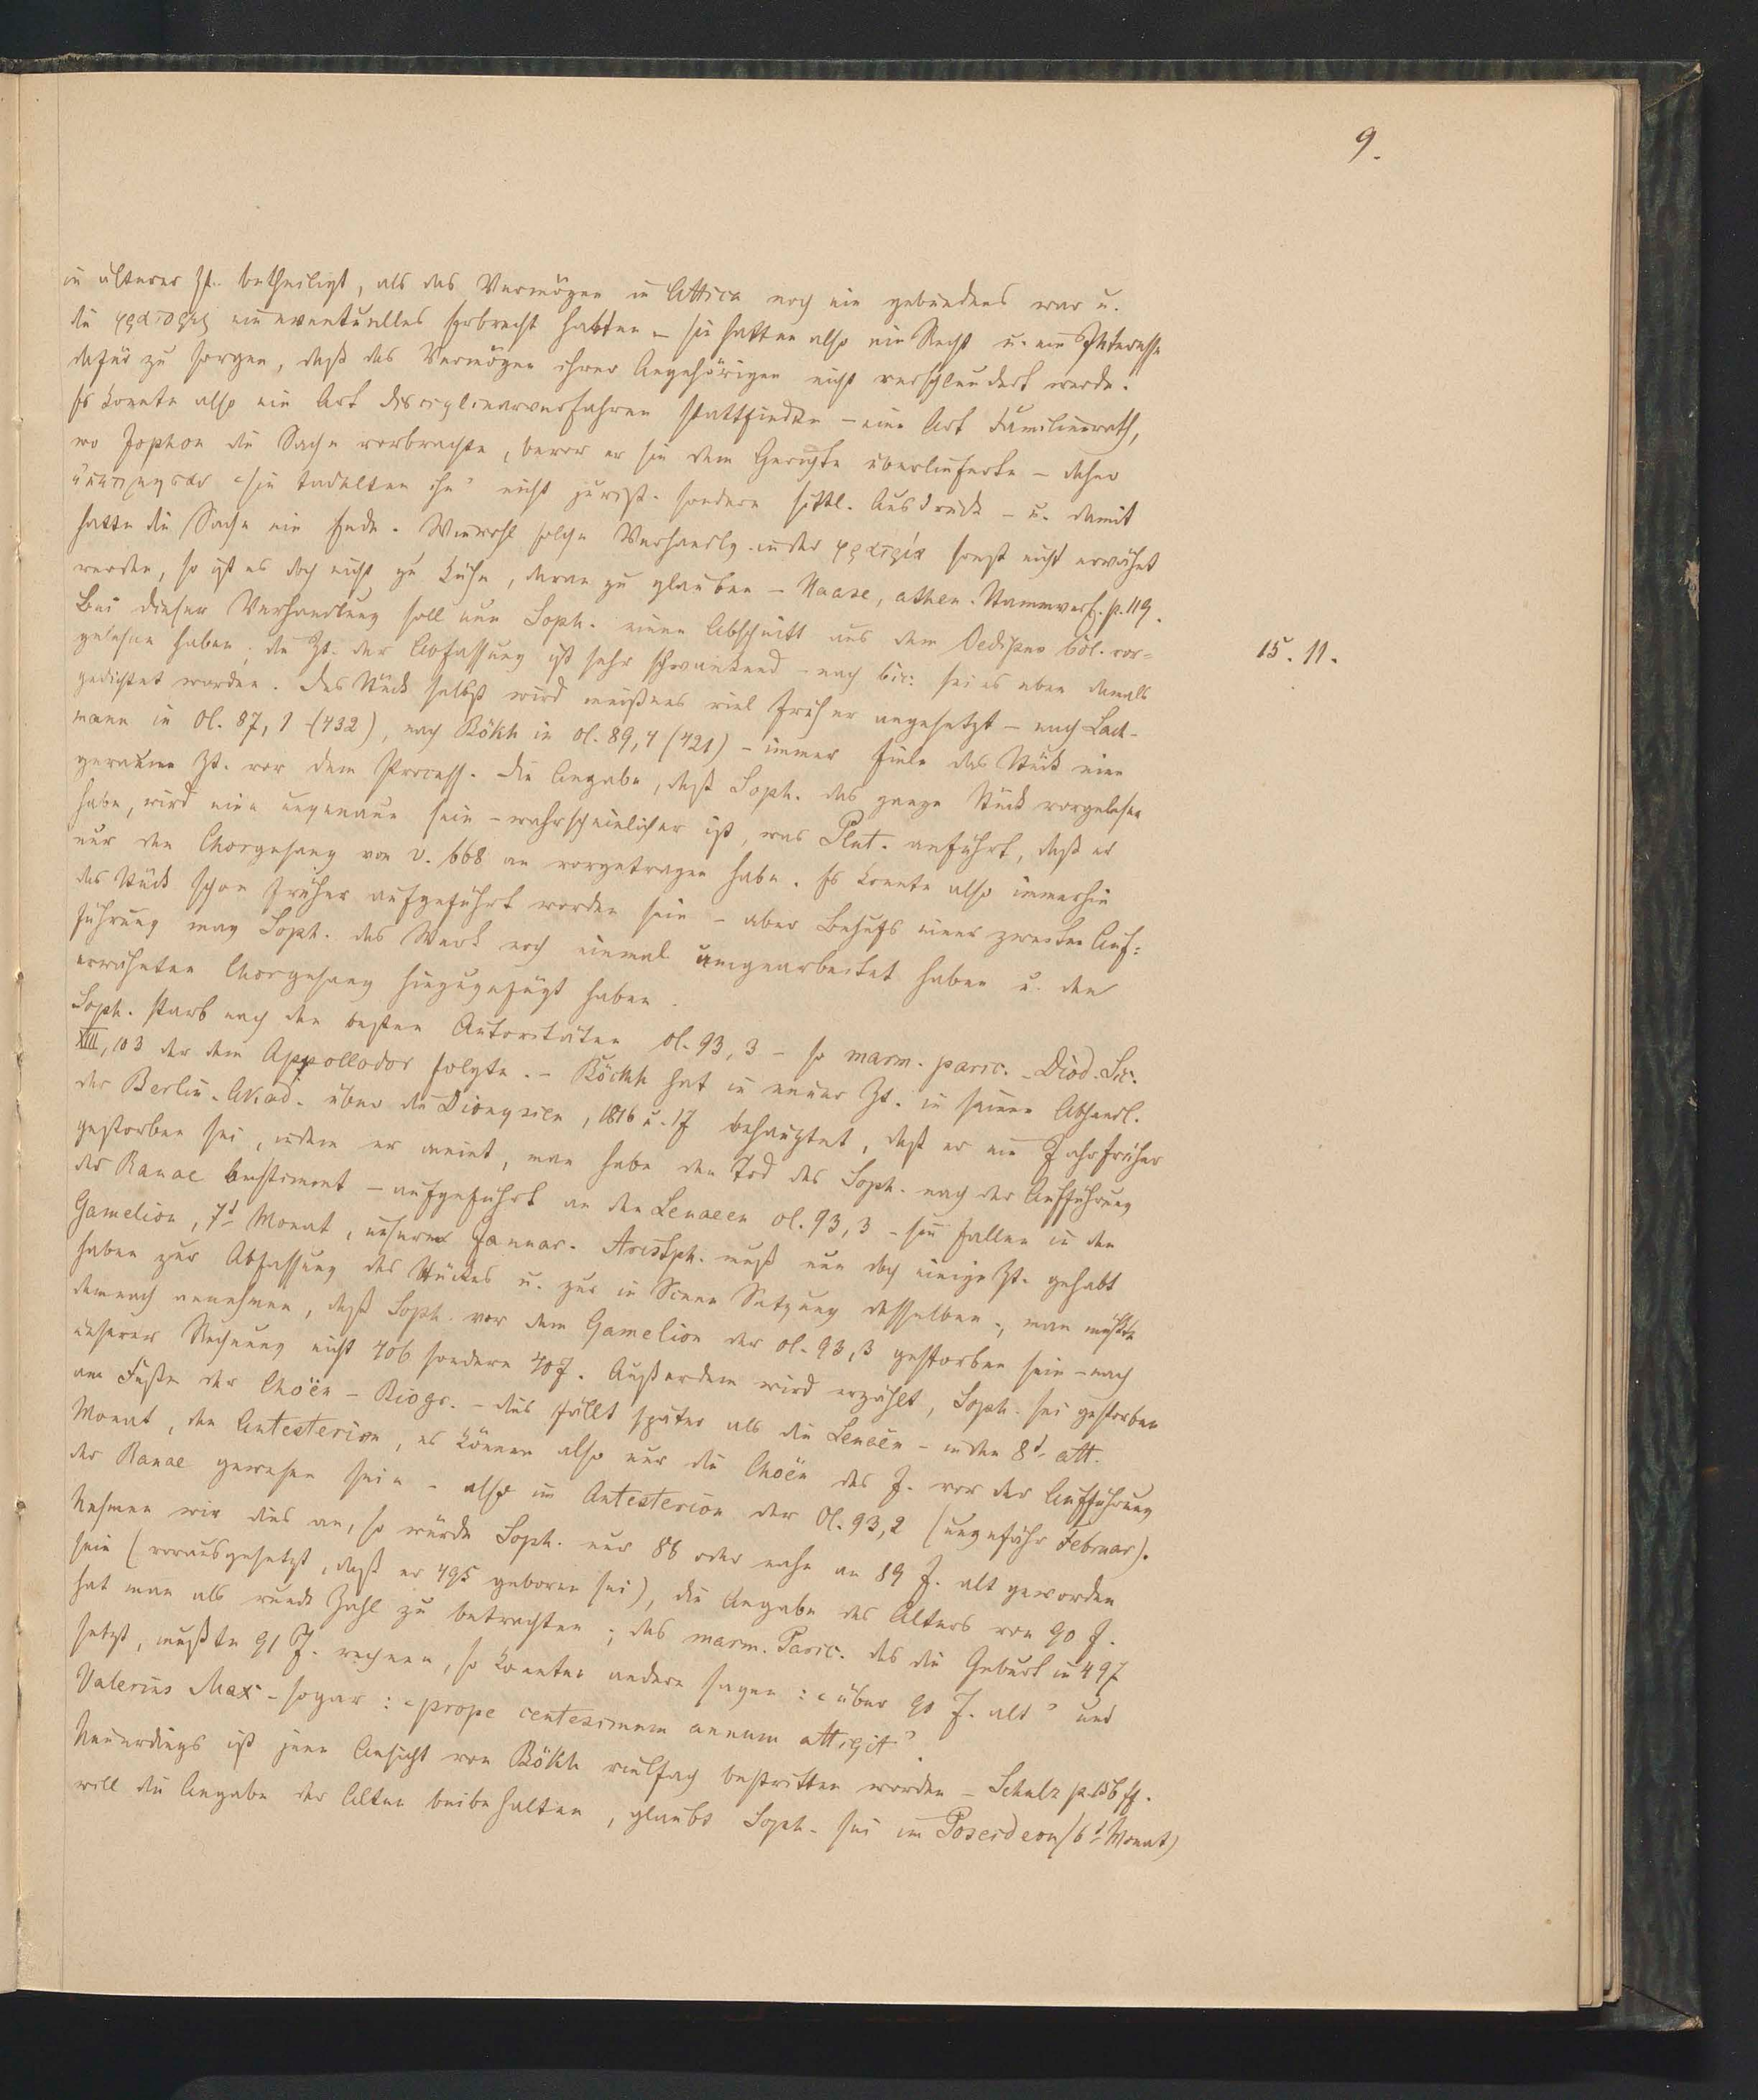 9.
in älterer Zt. betheiligt, als das Vermögen in Attica noch ein gebundenes war u.
die φράτορες ein eventuelles Erbrecht hatten – sie hatten also ein Recht u. ein Interesse
dafür zu sorgen, daß das Vermögen ihrer Angehörigen nicht verschleudert werde.
Es konnte also ein Art Disciplinarverfahren stattfinden – eine Art Familienrath,
wo Jophon die Sache vorbrachte, bevor er sie dem Gerichte überlieferte – daher
„sie tadelten ihn“ nicht jurist. sondern sittl. Ausdruck – u. damit
hatte die Sache ein Ende. Wiewohl solche Verhandlg. in der φρατρία sonst nicht erwähnt
werden, so ist es doch nicht zu kühn, daran zu glauben – Haase, athen. Stammverf. p. 119.
Bei dieser Verhandlung soll nun Soph. einen Abschnitt aus dem Oedipus Col. vor=
gelesen haben; die Zt. der Abfassung ist sehr schwankend – nach Cic: sei es eben damals
15. 11.
gedichtet worden. Das Stück selbst wird meistens viel früher angesetzt – nach Lach-
mann in Ol. 87, 1 (432), nach Bökh in Ol. 89, 4 (421) – immer fiele das Stück eine
geraume Zt. vor dem Process. Die Angabe, daß Soph. das ganze Stück vorgelesen
habe, wird eine ungenaue sein – wahrscheinlicher ist, was Plut. anführt, daß er
nur den Chorgesang von v. 668 an vorgetragen habe. Es konnte also immerhin
das Stück schon früher aufgeführt worden sein – aber Behufs einer zweiten Auf=
führung mag Soph. das Werk noch einmal umgearbeitet haben u. den
erwähnten Chorgesang hinzugefügt haben.
Soph. starb nach den besten Autoritäten Ol. 93, 3 – so marm. paric. – Diod. Sic.
XIII, 103 der dem Appollodor folgte. – Böckh hat in neuer Zt. in seiner Abhandl.
der Berlin. Akad. über die Dionysien, 1816 u. 17 behauptet, daß er ein Jahr früher
gestorben sei, indem er meint, man habe den Tod des Soph. nach der Aufführung
der Ranae bestimmt – aufgeführt an den Lenaeen Ol. 93, 3 – sie fallen in den
Gamelion, 7t Monat, unserem Januar. Aristph. muß nun doch einige Zt. gehabt
haben zur Abfassung des Stückes u. zur in Scene Setzung desselben, man müßte
demnach annehmen, daß Soph. vor dem Gamelion der Ol. 93, 3 gestorben sein – nach
unserer Rechnung nicht 406 sondern 407. Außerdem wird erzählt, Soph. sei gestorben
am Feste der Choën – Biogr. – dies fällt später als die Lenäen – in den 8t. att.
Monat, den Antesterion, es können also nur die Choën des J. vor der Aufführung
der Ranae gewesen sein – also im Antesterion der Ol. 93, 2 (ungefähr Februar).
Nehmen wir dies an, so würde Soph. nur 88 oder nahe an 89 J. alt geworden
sein (vorausgesetzt, daß er 495 geboren sei), die Angabe des Alters von 90 J.
hat man als runde Zahl zu betrachten; das marm. Paric. das die Geburt in 497
setzt, mußte 91 J. rechnen, so konnten andere sagen: „über 90 J. alt“ und
Valerius Max – sogar: „prope centesimum annum attigit“.
Neuerdings ist jene Ansicht von Bökh vielfach bestritten worden – Schulz p. ff.
will die Angabe der Alten beibehalten, glaubt Soph. sei im Poseideon (6t Monat)